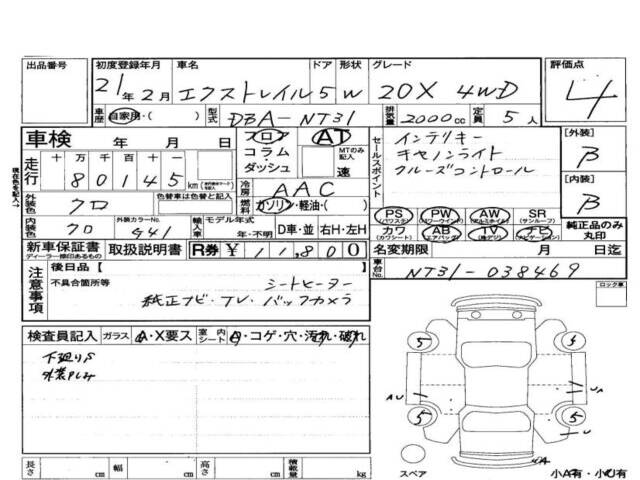 出品番号 初度登録年月 車名 ドア 形状 グレード 評価点
21年 2月 エクストレイル 5 W 20X 4WD 4
車歴 自家用・( ) 型式 DBA-NT31 排気量 2000cc 定員 5人
車検 年 月 日 フロア AT インテリキー [外装]
コラム・ダッシュ MTのみ記入 速 キセノンライト B
走行 十 万 千 百 十 一 セールスポイント クルーズコントロール
80145 km 冷房 AAC [内装]
現在色を記入→
外装色 クロ 色替車は色替と記入 燃料 ガソリン・軽油・( ) B
PS PW AW SR
(パワステ) (パワーウインド) (アルミホイル) (サンルーフ)
内装色 クロ 外装カラーNo. G41 輸入車 モデル年式 年・不明 D車・並 右H・左H カワ AB TV ナビ 純正品のみ丸印
(カワシート) (エアバッグ) (地デジ) (ナビゲーション)
新車保証書 取扱説明書 R券 ¥11,800 名変期限 月 日迄
ディーラー捺印あるもの
車台No. NT31-038469
注意事項 後日品【 】
不具合箇所等 シートヒーター ロック車
純正ナビ・TV・バックカメラ
検査員記入 ガラス A・X要ス 室内シート コゲ・穴・汚れ・破れ
下廻りS
5 5
AU UA
5 5
U
UA
長さ cm 幅 cm 高さ cm 積載量 kg スペア 小A有・小U有